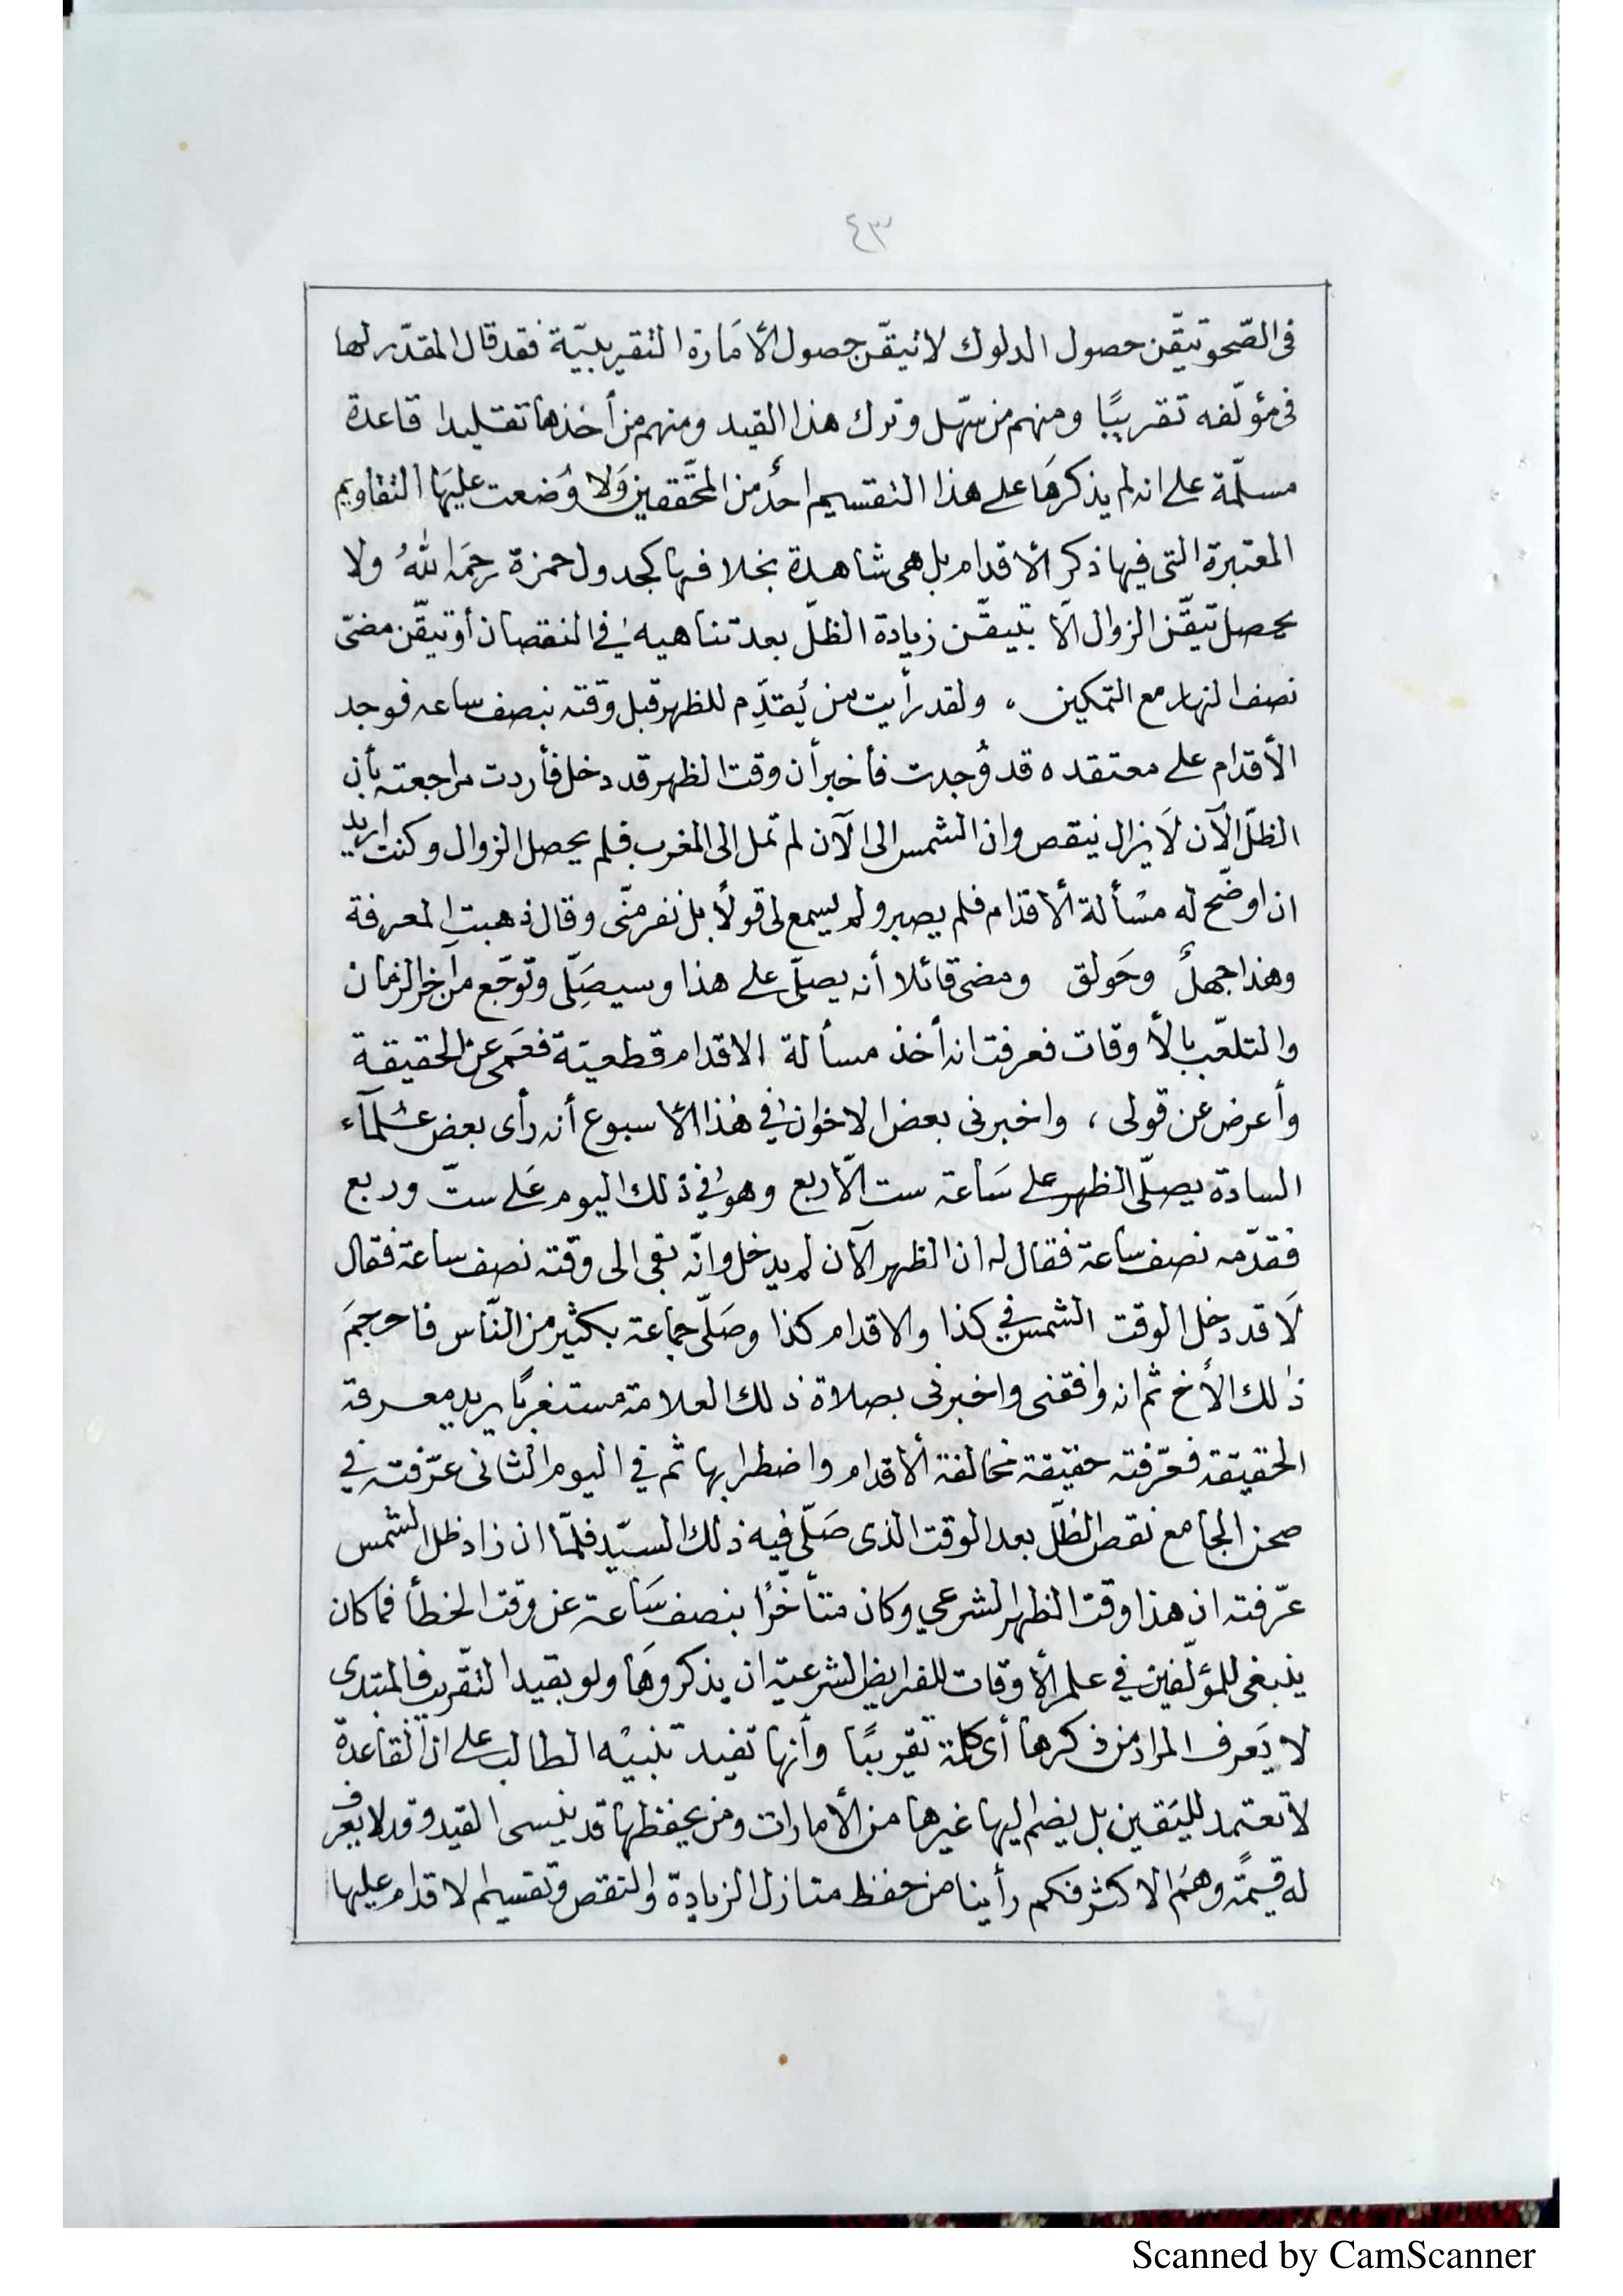 ٤٣
فى الصّحو تيقّن حصول الدلوك لا تيقّن حصول الأمَارة التقريبيّة فقد قال المقدّر لها
فى مؤلّفه تقريبًا ومنهم من سهّل وترك هذا القيد ومنهم من أخذها تقليدا قاعدة
مسلّمة على انه لم يذكرهَا على هذا التقسيم احدٌ من المحقّقين وَلا وُضعت عليهَا التقاويم
المعتبرة التى فيها ذكر الأقدام بل هى شاهدة بخلافها كجدول حمزة رحمَه اللهُ ولا
يحصل تيقّن الزوال الّا بتيقّن زيادة الظلّ بعد تناهيه فى النقصان أو تيقّن مضىّ
نصف النهار مع التمكين ، ولقد رأيت من يُقدِّم للظهر قبل وقته بنصف ساعه فوجد
الأقدام على معتقده قد وُجدت فأخبر أن وقت الظهر قد دخل فأردت مراجعته بأن
الظلّ الآن لَا يزال ينقص وان الشمس الى الآن لم تمل الى المغرب فلم يحصل الزوال وكنت اريد
ان اوضّح له مسْألة الأقدام فلم يصبر ولم يسمع لى قولًا بل نفر منّى وقال ذهبتِ المعرفة
وهذا جهلٌ وحَولق ومضى قائلا أنه يصلّى على هذا وسيصَلِّى وتوجّع من آخر الزمان
والتلعّب بالأوقات فعرفت انه أخذ مسألة الاقدام قطعيّة فعَمى عن الحقيقة
وأعرض عن قولى ، واخبرنى بعض الاخوان فى هذا الأسبوع أنه رأى بعض عُلمآء
السادة يصلّى الظهر على سَاعة ست الّا ربع وهو فى ذلك اليوم عَلى ستّ وربع
فقدّمه نصف ساعة فقال له ان الظهر الآن لم يدخل وانّه بقى الى وقته نصف ساعة فقال
لَا قد دخل الوقت الشمس فى كذا والاقدام كذا وصَلّى جماعة بكثير من النّاس فاحرجمَ
ذٰلك الأخ ثم انه وافقنى واخبرنى بصلاة ذلك العلامة مستغربًا يريد معرفة
الحقيقة فعّرفته حقيقة مخالفة الأقدام واضطرابها ثم في اليوم الثانى عرّفته في
صحن الجامع نقص الظلّ بعد الوقت الذى صَلّى فيه ذلك السيّد فلمّا ان زاد ظل الشمس
عرّفته ان هذا وقت الظهر الشرعي وكان متأخّرًا بنصف سَاعة عن وقت الخطأ فما كان
ينبغى للمؤلّفين في علم الأوقات للفرايض الشرعيّة ان يذكروهَا ولو بقيد التقريب فالمبتدى
لا يَعرف المراد من ذكرها أى كلمة تقريبًا وأنها تفيد تنبيْه الطالب على ان القاعدة
لا تعتمد لليَقين بل يضم اليها غيرها من الأمارات ومن يحفظها قد ينسى القيد وقد لا يعرف
له قيمةً وهم الاكثر فكم رأينا من حفظ منازل الزيادة والنقص وتقسيم الاقدام عليها
Scanned by CamScanner